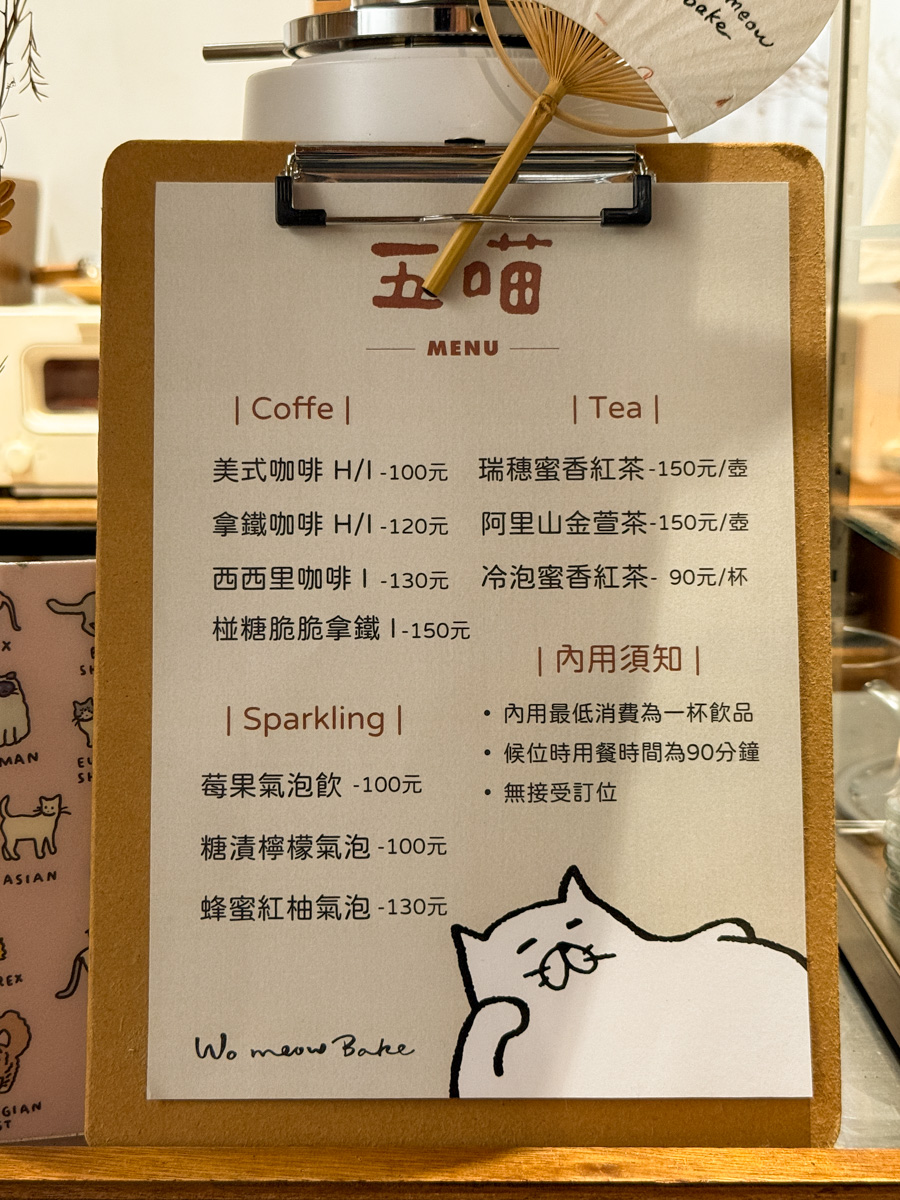 meow
bake
五喵
MENU
| Coffe |
美式咖啡 H/I -100元
拿鐵咖啡 H/I -120元
西西里咖啡 I -130元
椪糖脆脆拿鐵 I -150元
| Sparkling |
莓果氣泡飲 -100元
糖漬檸檬氣泡 -100元
蜂蜜紅柚氣泡 -130元
| Tea |
瑞穗蜜香紅茶-150元/壺
阿里山金萱茶-150元/壺
冷泡蜜香紅茶- 90元/杯
| 內用須知 |
• 內用最低消費為一杯飲品
• 候位時用餐時間為90分鐘
• 無接受訂位
Wo meow Bake
MAN
ASIAN
REX
GIAN